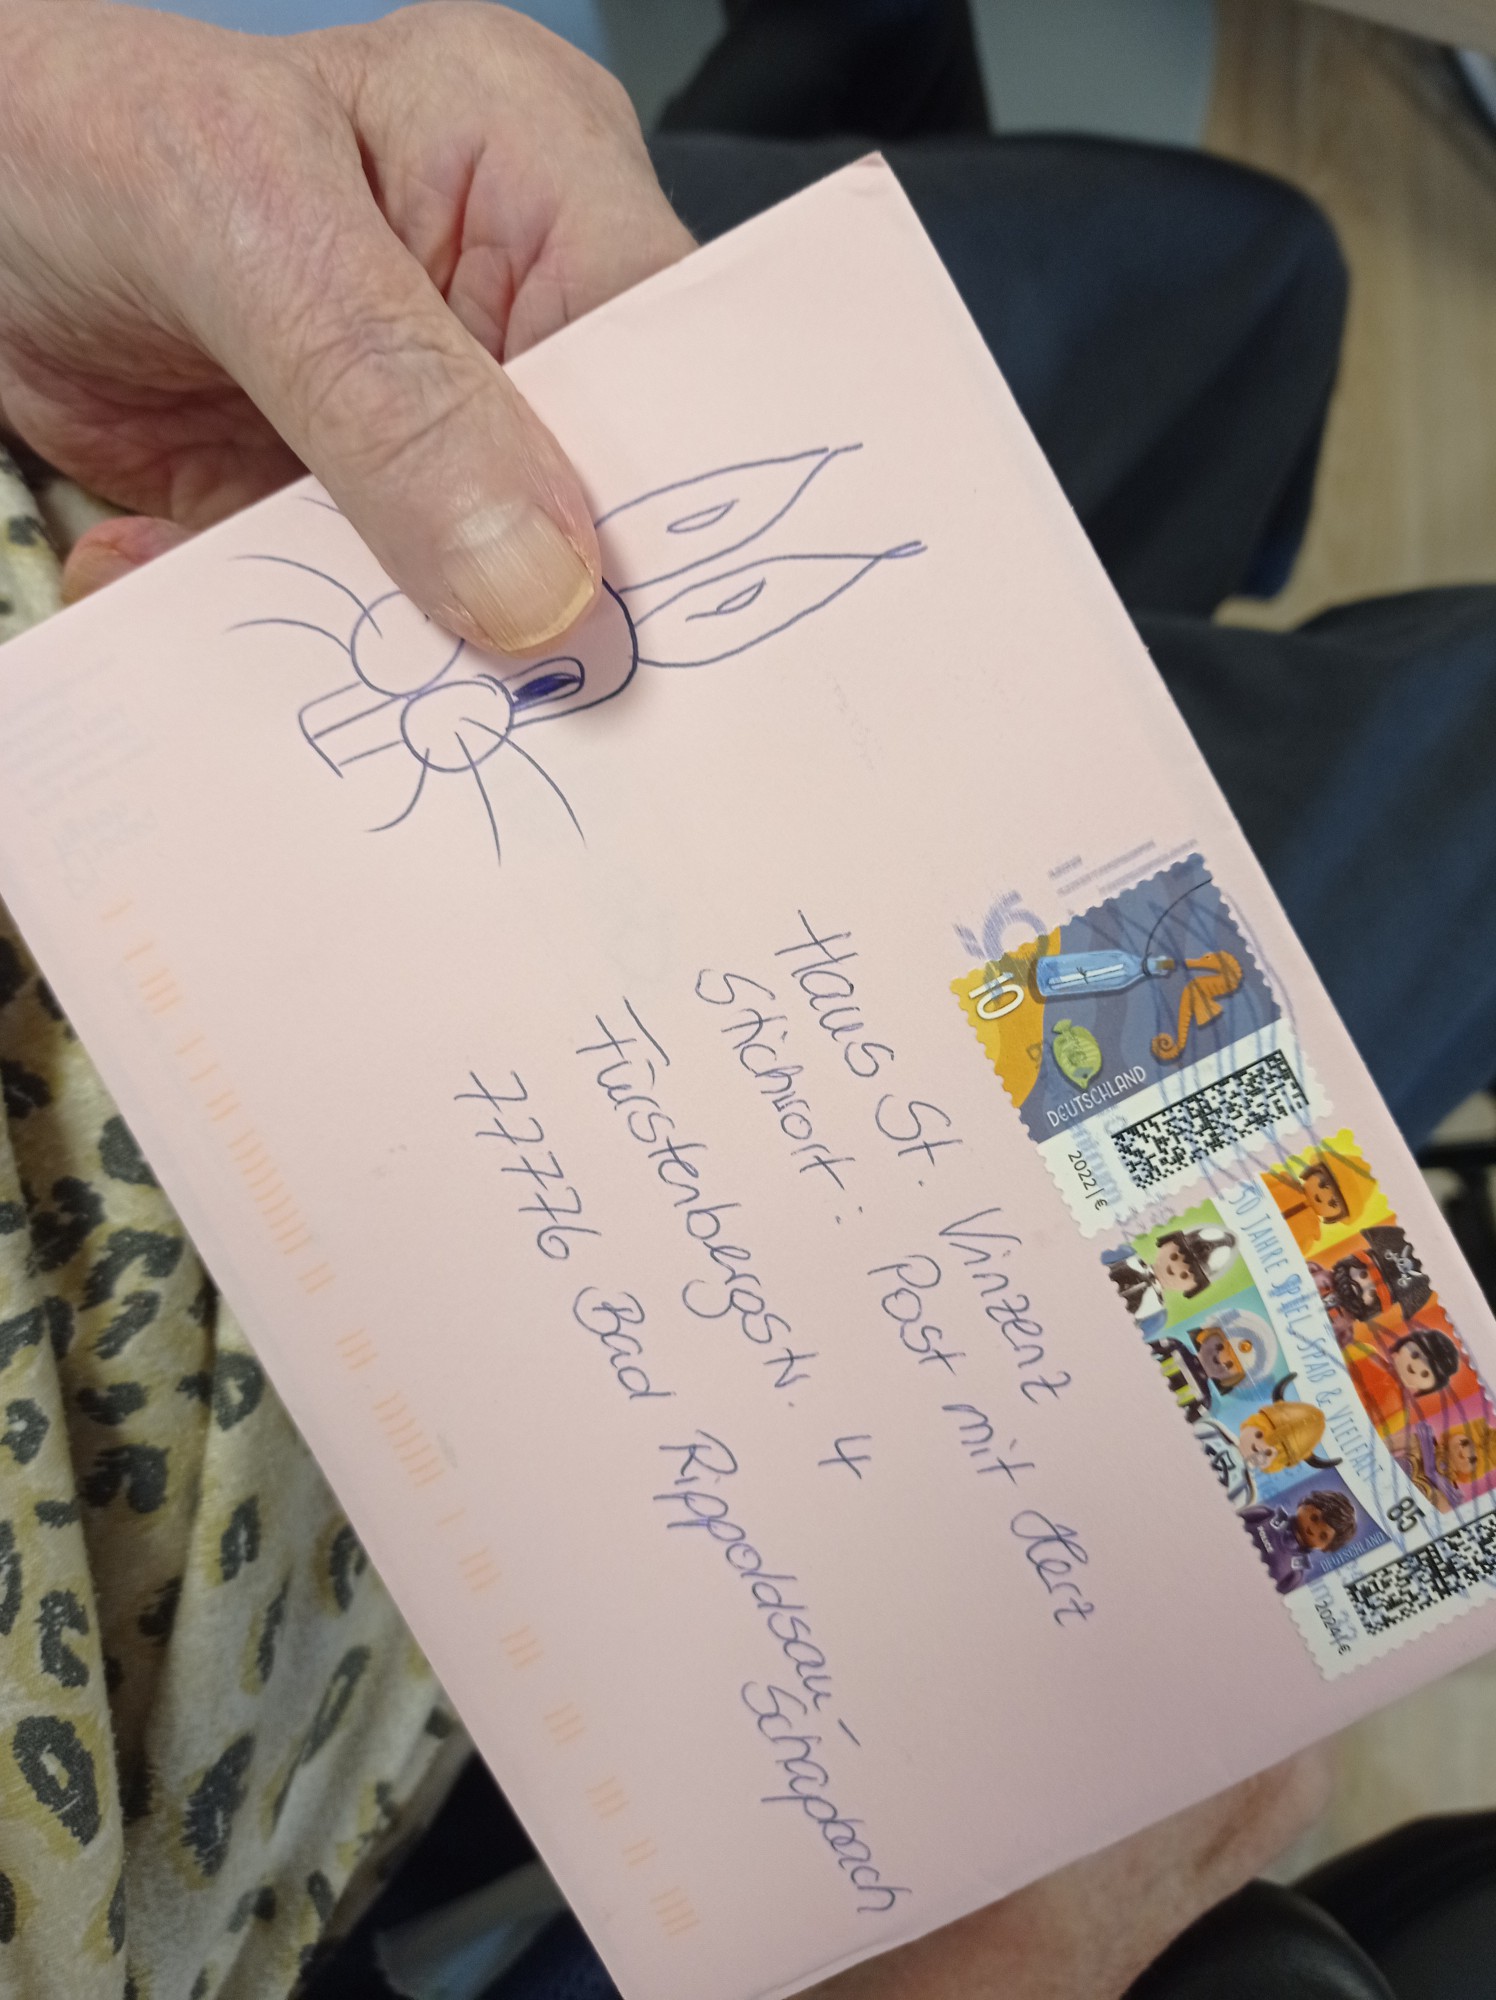 Haus St. Vinzenz
Stichwort: Post mit Herz
Fürstenbergstr. 4
77776 Bad Rippoldsau-
Schapbach
10
DEUTSCHLAND
2022 | €
50 JAHRE SPIEL, SPAß & VIELFALT
85
DEUTSCHLAND
2024 | €